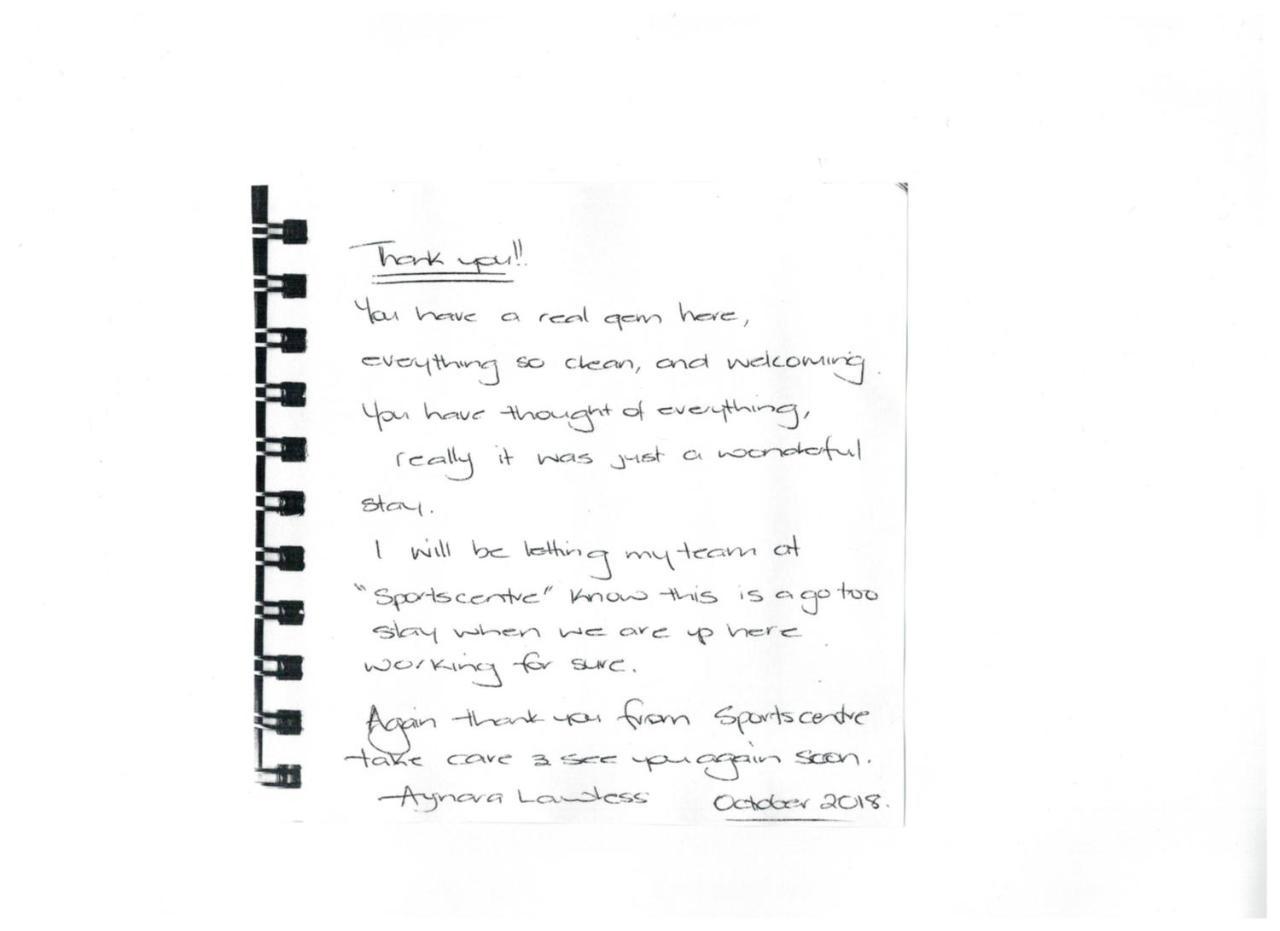 Thank you!!
You have a real gem here,
everything so clean, and welcoming.
You have thought of everything,
really it was just a wonderful
stay.
I will be letting my team at
"Sportscentre" know this is a go too
stay when we are up here
working for sure.
Again thank you from Sportscentre
take care & see you again soon.
- Aynara Lawless October 2018.